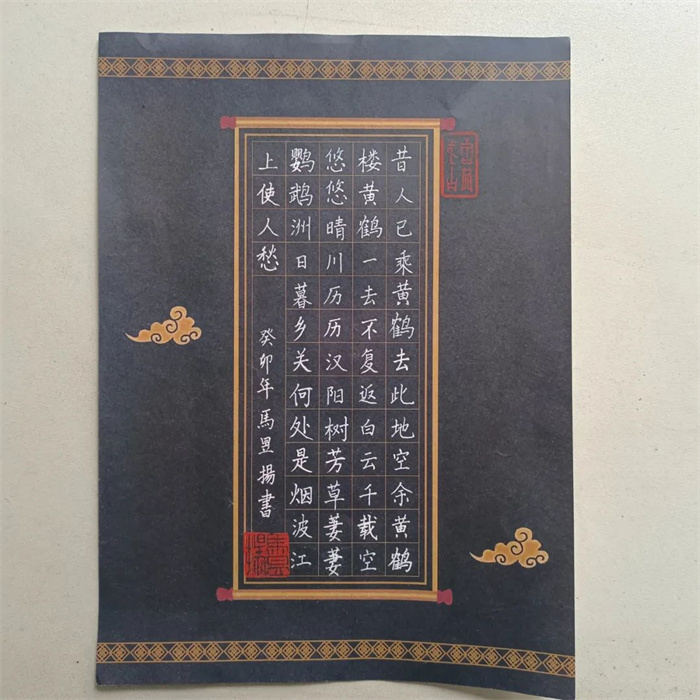 昔人已乘黄鹤去此地空余黄鹤
楼黄鹤一去不复返白云千载空
悠悠晴川历历汉阳树芳草萋萋
鹦鹉洲日暮乡关何处是烟波江
上使人愁
癸卯年馬昱揚書